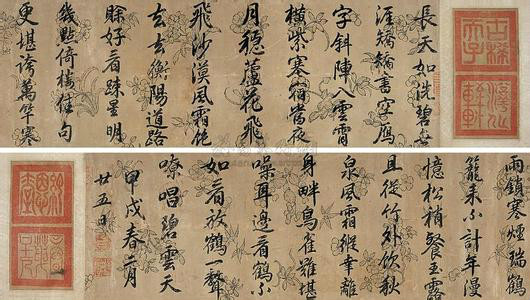 長天如洗碧無
涯矯矯書字鴈
字斜陣入雲霄
橫紫塞宿當夜
月穩蘆花飛
飛沙漠風霜飽
去去衡陽道路
賒好看疎星明
幾點倚樓佳句
更堪誇萬年寒
雨鎖寒煙瑞鶴
籠來不計年漫
憶松梢餐玉露
且從竹外飲秋
泉風霜縱幸離
身畔鳥雀難堪
噪耳邊看鶴不
如看放鶴一聲
嘹唱碧雲天
甲戌春二月
廿五日